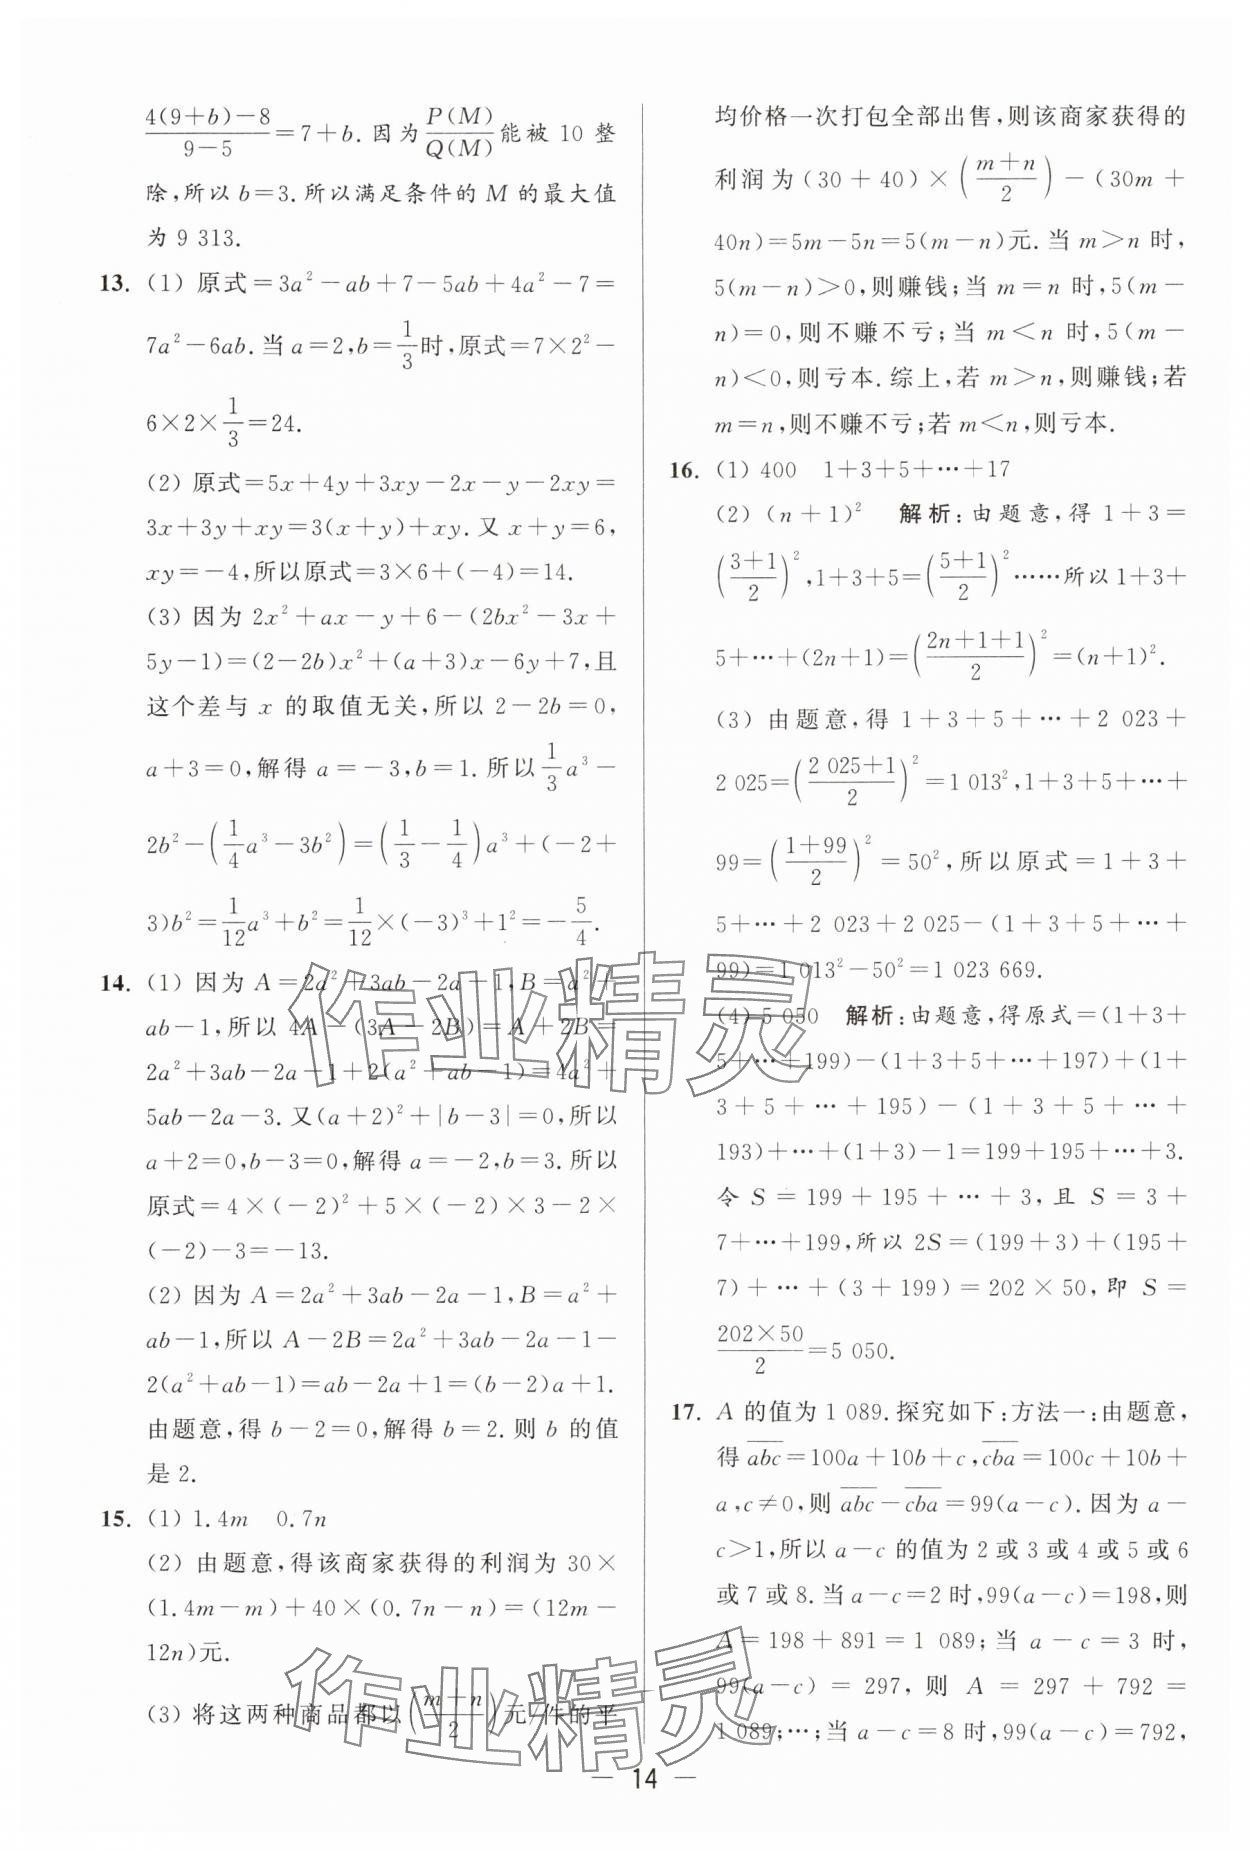 4(9+b)-8/9-5=7+b.因为P(M)/Q(M)能被 10 整
除,所以 b=3.所以满足条件的 M 的最大值
为 9 313.
13. (1) 原式=3a²-ab+7-5ab+4a²-7=
7a²-6ab.当 a=2,b=1/3时,原式=7×2²-
6×2×1/3=24.
(2) 原式=5x+4y+3xy-2x-y-2xy=
3x+3y+xy=3(x+y)+xy.又 x+y=6,
xy=-4,所以原式=3×6+(-4)=14.
(3) 因为 2x²+ax-y+6-(2bx²-3x+
5y-1)=(2-2b)x²+(a+3)x-6y+7,且
这个差与 x 的取值无关,所以 2-2b=0,
a+3=0,解得 a=-3,b=1.所以1/3a³-
2b²-(1/4a³-3b²)=(1/3-1/4)a³+(-2+
3)b²=1/12a³+b²=1/12×(-3)³+1²=-5/4.
14. (1) 因为 A=2a²+3ab-2a-1,B=a²+
ab-1,所以 4A-(3A-2B)=A+2B=
2a²+3ab-2a-1+2(a²+ab-1)=4a²+
5ab-2a-3.又(a+2)²+|b-3|=0,所以
a+2=0,b-3=0,解得 a=-2,b=3.所以
原式=4×(-2)²+5×(-2)×3-2×
(-2)-3=-13.
(2) 因为 A=2a²+3ab-2a-1,B=a²+
ab-1,所以 A-2B=2a²+3ab-2a-1-
2(a²+ab-1)=ab-2a+1=(b-2)a+1.
由题意,得 b-2=0,解得 b=2.则 b 的值
是 2.
15. (1) 1.4m 0.7n
(2) 由题意,得该商家获得的利润为 30×
(1.4m-m)+40×(0.7n-n)=(12m-
12n)元.
(3) 将这两种商品都以(m+n/2)元/件的平
均价格一次打包全部出售,则该商家获得的
利润为(30+40)×(m+n/2)-(30m+
40n)=5m-5n=5(m-n)元.当 m>n 时,
5(m-n)>0,则赚钱;当 m=n 时,5(m-
n)=0,则不赚不亏;当 m<n 时,5(m-
n)<0,则亏本.综上,若 m>n,则赚钱;若
m=n,则不赚不亏;若 m<n,则亏本.
16. (1) 400 1+3+5+…+17
(2) (n+1)² 解析:由题意,得 1+3=
(3+1/2)²,1+3+5=(5+1/2)²……所以 1+3+
5+…+(2n+1)=(2n+1+1/2)²=(n+1)².
(3) 由题意,得 1+3+5+…+2 023+
2 025=(2 025+1/2)²=1 013²,1+3+5+…+
99=(1+99/2)²=50²,所以原式=1+3+
5+…+2 023+2 025-(1+3+5+…+
99)=1 013²-50²=1 023 669.
(4) 5 050 解析:由题意,得原式=(1+3+
5+…+199)-(1+3+5+…+197)+(1+
3+5+…+195)-(1+3+5+…+
193)+…+(1+3)-1=199+195+…+3.
令 S=199+195+…+3,且 S=3+
7+…+199,所以 2S=(199+3)+(195+
7)+…+(3+199)=202×50,即 S=
202×50/2=5 050.
17. A 的值为 1 089.探究如下:方法一:由题意,
得 a̅b̅c̅=100a+10b+c,c̅b̅a̅=100c+10b+
a,c≠0,则 a̅b̅c̅-c̅b̅a̅=99(a-c).因为 a-
c>1,所以 a-c 的值为 2 或 3 或 4 或 5 或 6
或 7 或 8.当 a-c=2 时,99(a-c)=198,则
A=198+891=1 089;当 a-c=3 时,
99(a-c)=297,则 A=297+792=
1 089;…;当 a-c=8 时,99(a-c)=792,
14
作业精灵
作业精灵